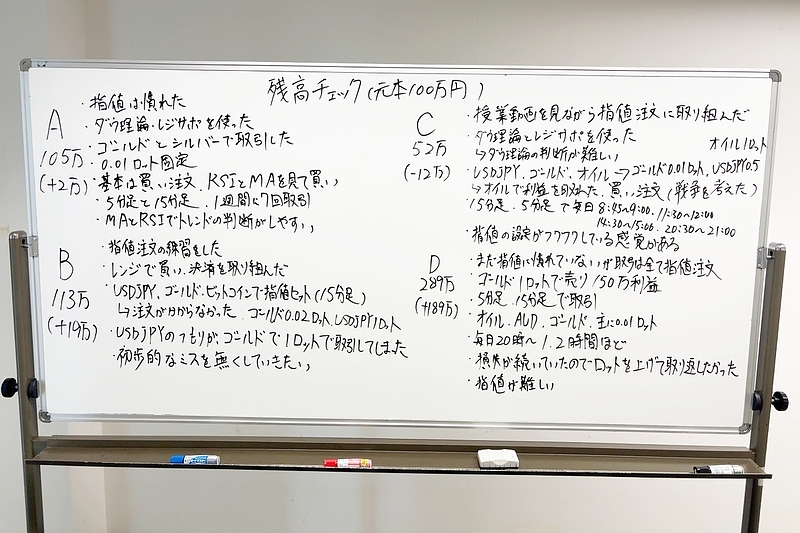 残高チェック(元本100万円)
A
105万
(+2万)
・指値は慣れた
・ダウ理論・レジサポを使った
・ゴールドとシルバーで取引した
・0.01ロット固定
・基本は買い注文、RSIとMAを見て買い、
・5分足と15分足、1週間に7回取引
・MAとRSIでトレンドの判断がしやすい、
B
113万
(+19万)
・指値注文の練習をした
・レンジで買い、決済を取り組んだ
・USDJPY、ゴールド、ビットコインで指値セット(15分足)
↳注文が分からなかった、ゴールド0.02ロット、USDJPY1ロット
・USDJPYのつもりが、ゴールドで1ロットで取引してしまた
・初歩的なミスを無くしていきたい、
C
52万
(-12万)
・授業動画を見ながら指値注文に取り組んだ
・ダウ理論とレジサポを使った
↳ダウ理論の判断が難しい、
オイル1ロット
・USDJPY、ゴールド、オイル→ゴールド0.01ロット、USDJPY0.5
↳オイルで利益を目的れた、買い注文(戦争を考えた)
・15分足、5分足で毎日8:45~9:00、11:30~12:00
14:30~15:00、20:30~21:00
・指値の設定がフワフワしている感覚がある
D
289万
(+189万)
・まだ指値に慣れていないが取引は全て指値注文
・ゴールド1ロットで売り150万利益
・5分足、15分足で取引
・オイル、AUD、ゴールド、主に0.01ロット
・毎日20時~1、2時間ほど
・損失が続いていたのでロットを上げて取り返したかった
・指値が難しい